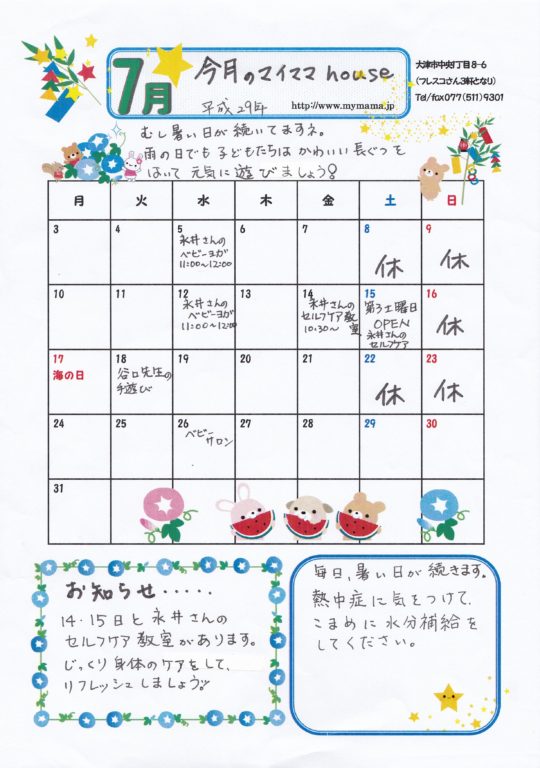 7月
今月のマイママ house
平成29年
http://www.mymama.jp
大津市中央1丁目8-6
(フレスコさん3軒となり)
Tel/fax077(511)9301
むし暑い日が続いてますネ。
雨の日でも子どもたちは かわいい長ぐつを
はいて 元気に遊びましょう!
月 火 水 木 金 土 日
3 4 5 6 7 8 9
永井さんの
ベビーヨガ
11:00~12:00
休 休
10 11 12 13 14 15 16
永井さんの
ベビーヨガ
11:00~12:00
永井さんの
セルフケア教室
10:30~
第3土曜日
OPEN
永井さんの
セルフケア
休
17 18 19 20 21 22 23
海の日
谷口先生の
手遊び
休 休
24 25 26 27 28 29 30
ベビー
サロン
31
お知らせ・・・・・
14・15日と永井さんの
セルフケア教室があります。
じっくり身体のケアをして、
リフレッシュしましょう!!
毎日、暑い日が続きます。
熱中症に気をつけて、
こまめに水分補給を
してください。